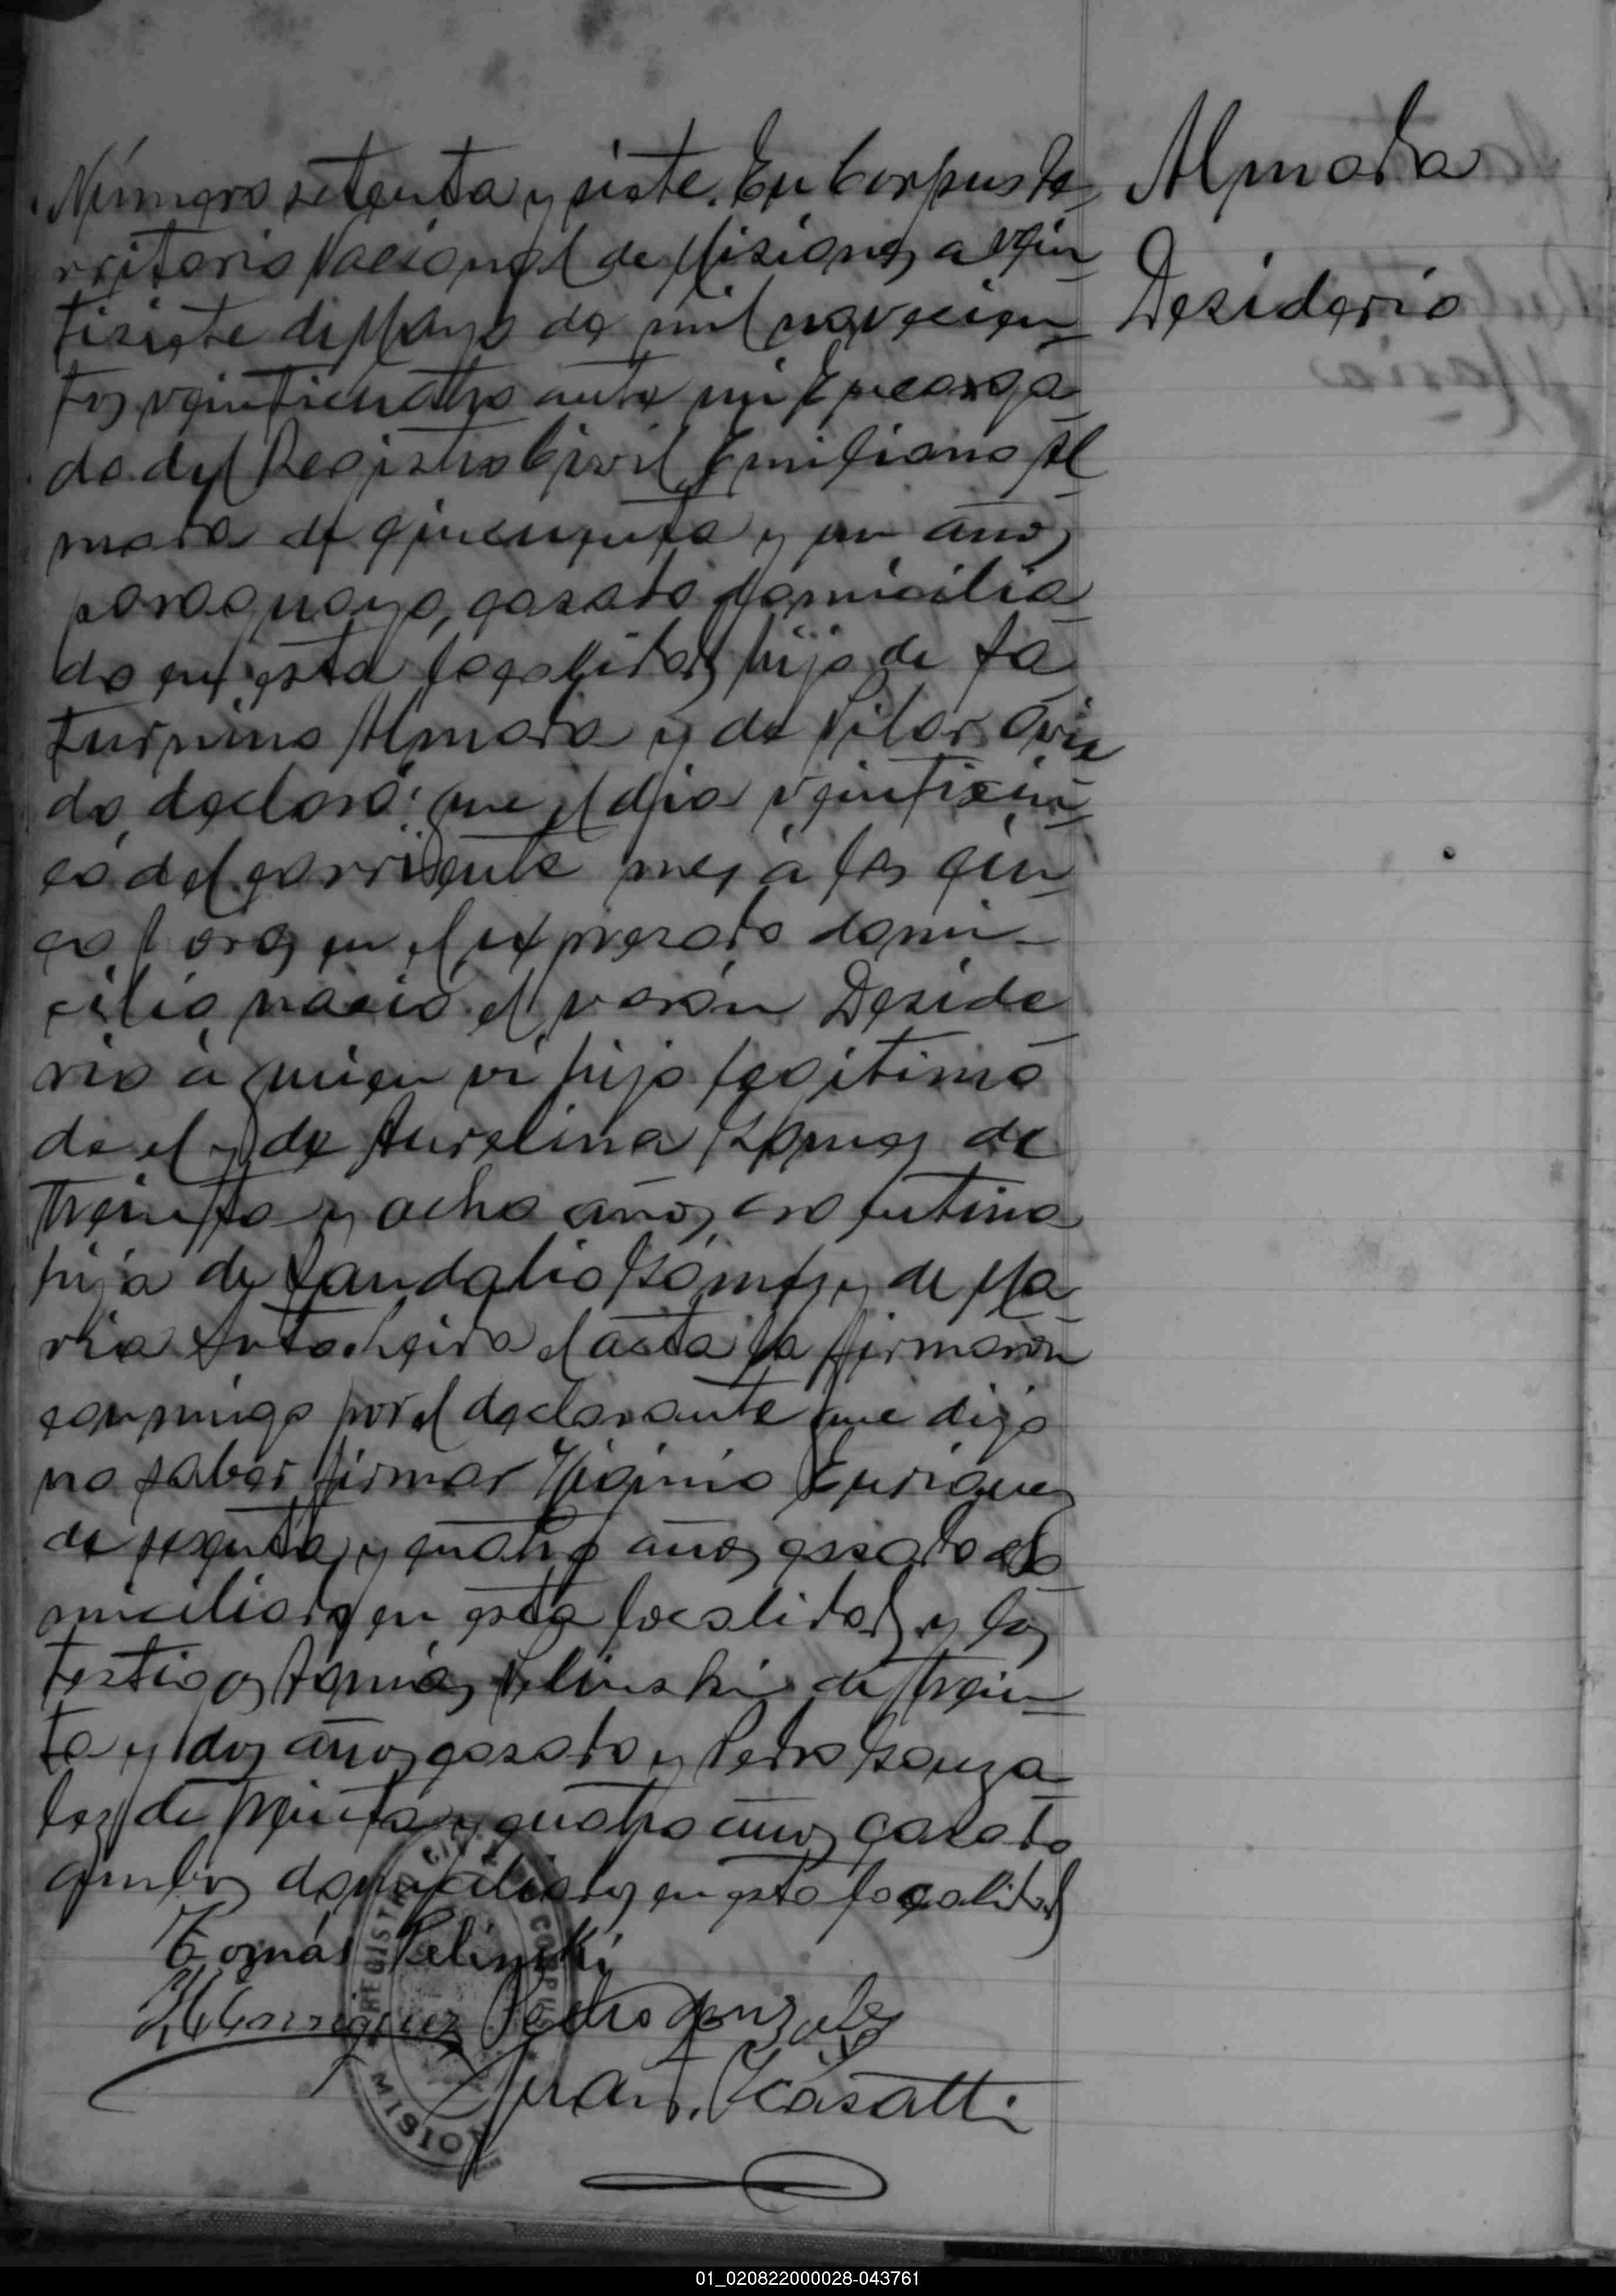 Almada
Desiderio
Número setenta y siete. En Corpus te
rritorio Nacional de Misiones a vein
tisiete de Mayo de mil novecien
tos veinticuatro ante mi Encarga
do del Registro Civil Emiliano Al
mada de cincuenta y un años
paraguayo, casado domicilia
do en esta localidad hijo de Sa
turnino Almada y de Pilar Ovie
do declaró: que el dia veinticin
co del corriente mes á las cin
co horas en el expresado domi-
cilio nació el varón Deside
rio á quien vi hijo legitimo
de el y de Aurelina Gomez de
treinta y ocho años,
hija de Sandalio Gómez y de Ma
ria Soto. Leida el acta la firmarón
conmigo por el declarante que dijo
no saber firmar Higinio Enriquez
de sesenta y cuatro años casado do
miciliado en esta localidad y los
testigos Tomás Pelinski de trein
ta y dos años casado y Pedro Gonza
lez de treinta y cuatro años casado
ambos domiciliados en esta localidad
Tomás Pelinski
H. Enrriquez Pedro Gonzalez
Juan F. Casatti
REGISTRO CIVIL CORPUS
MISIONES
01_020822000028-043761